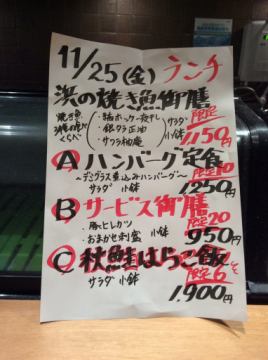 11/25(金) ランチ
浜の焼き魚御膳 限定
焼き魚 ・縞ホッケ一夜干し サラダ
3種の食べくらべ ・銀ダラ正油 小鉢
・サワラ柚庵 1150円
A ハンバーグ定食
〜デミグラス煮込みハンバーグ〜 限定10
サラダ 小鉢 1250円
B サービス御膳
・豚ヒレカツ 限定20
・おまかせ刺盛 小鉢 950円
C 秋鮭はらこ飯
サラダ 小鉢 限定6
1.900円